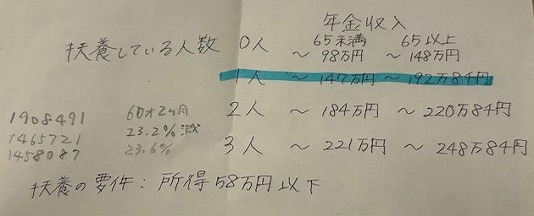 年金収入
扶養している人数 0人 65未満 ～98万円 65以上 ～148万円
1人 ～147万円 ～192万84円
1908491 60才2ヶ月 2人 ～184万円 ～220万84円
1465721 23.2%減
1458087 23.6% 3人 ～221万円 ～248万84円
扶養の要件：所得58万円以下